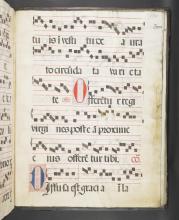 tu is i vesti tu de a ura
to circūda ta va ri eta
te Offerētur regi
virgi nes post e ā proxime
e ius offerē tur tibi. cō.
Diffusa est gracia i la